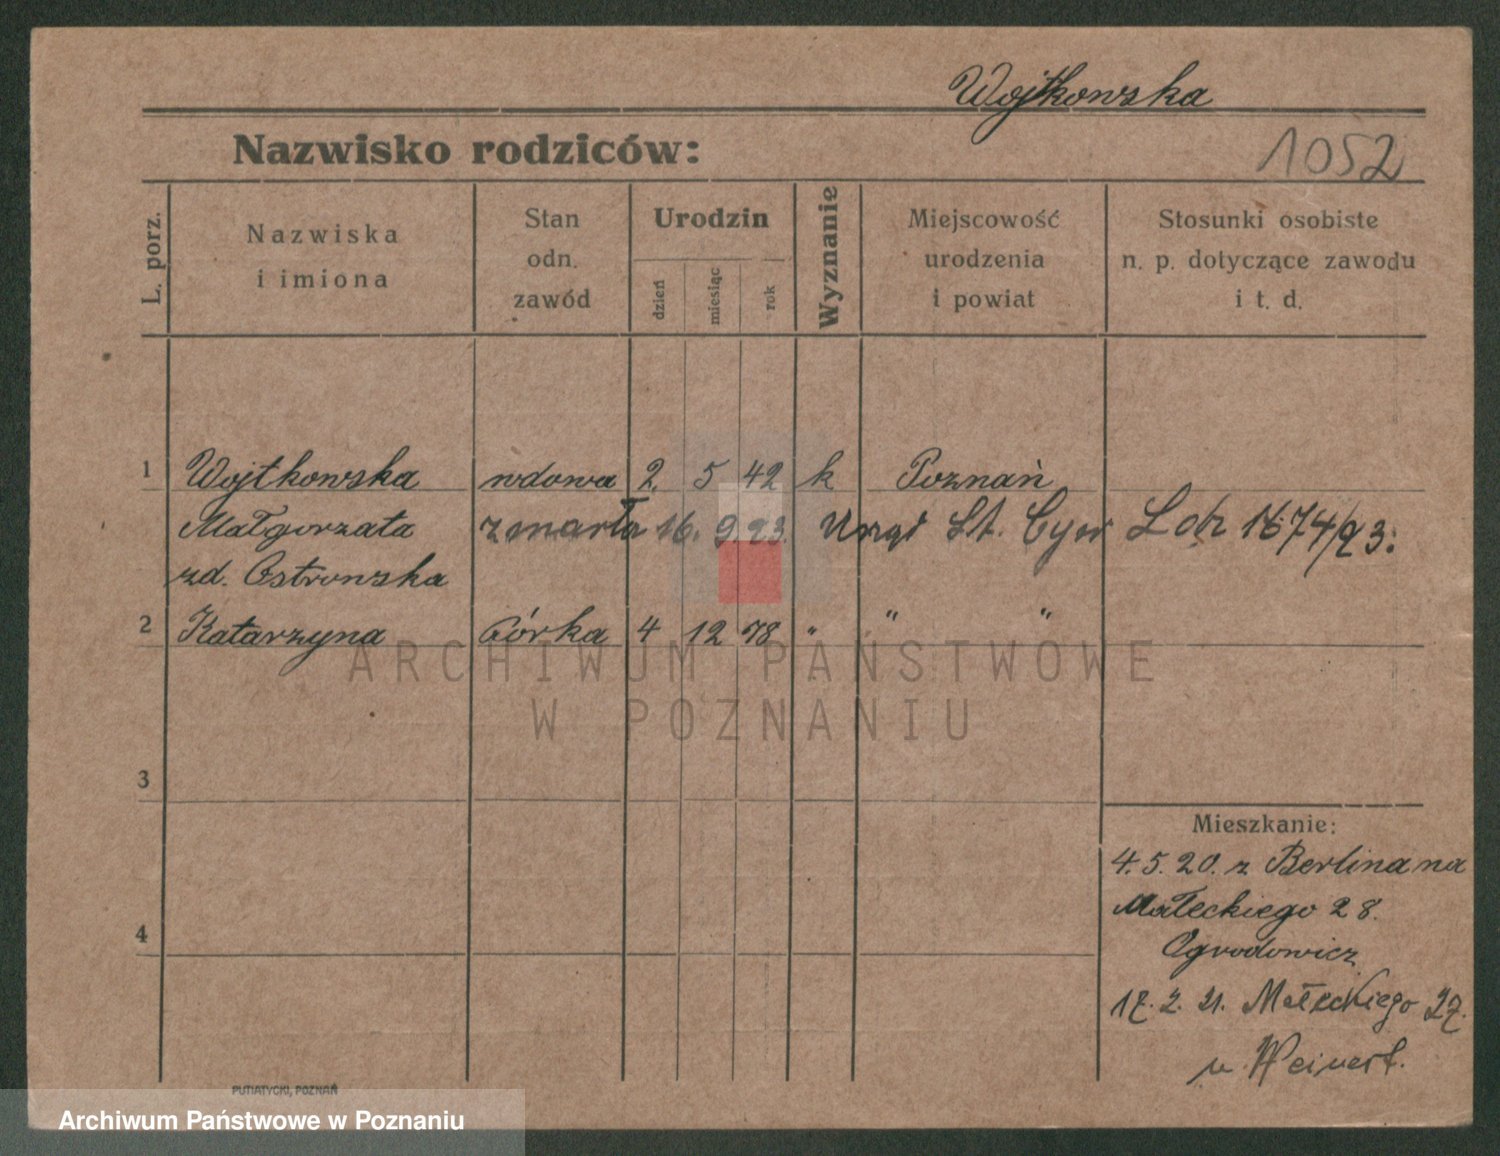 Wojtkowska
Nazwisko rodziców:
1052
L. porz.
Nazwiska
i imiona
Stan
odn.
zawód
Urodzin
dzień
miesiąc
rok
Wyznanie
Miejscowość
urodzenia
i powiat
Stosunki osobiste
n. p. dotyczące zawodu
i t. d.
1 Wojtkowska wdowa 2. 5 42 k Poznań
Małgorzata zmarła 16. 9. 23. Urząd St. Cyw Ldz 1674/23.
zd. Ostrowska
2 Katarzyna córka 4 12 78 " " "
ARCHIWUM PAŃSTWOWE
W POZNANIU
3
4
Mieszkanie:
4. 5. 20. z Berlina na
Małeckiego 28.
Ogrodowicz
17. 2. 21. Małeckiego 27.
u Weinert.
PUTIATYCKI, POZNAŃ
Archiwum Państwowe w Poznaniu